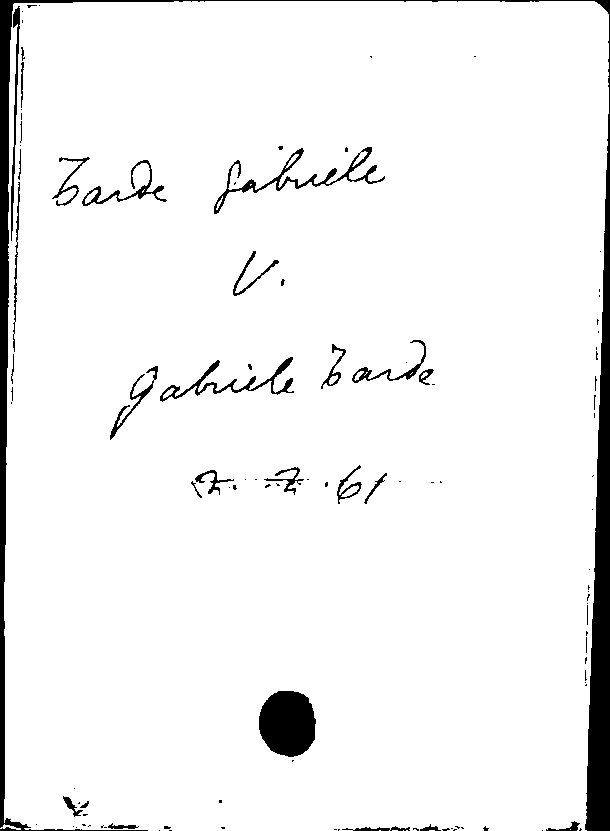 Tarde Gabriele
V.
Gabriele Tarde
7. 7. 61